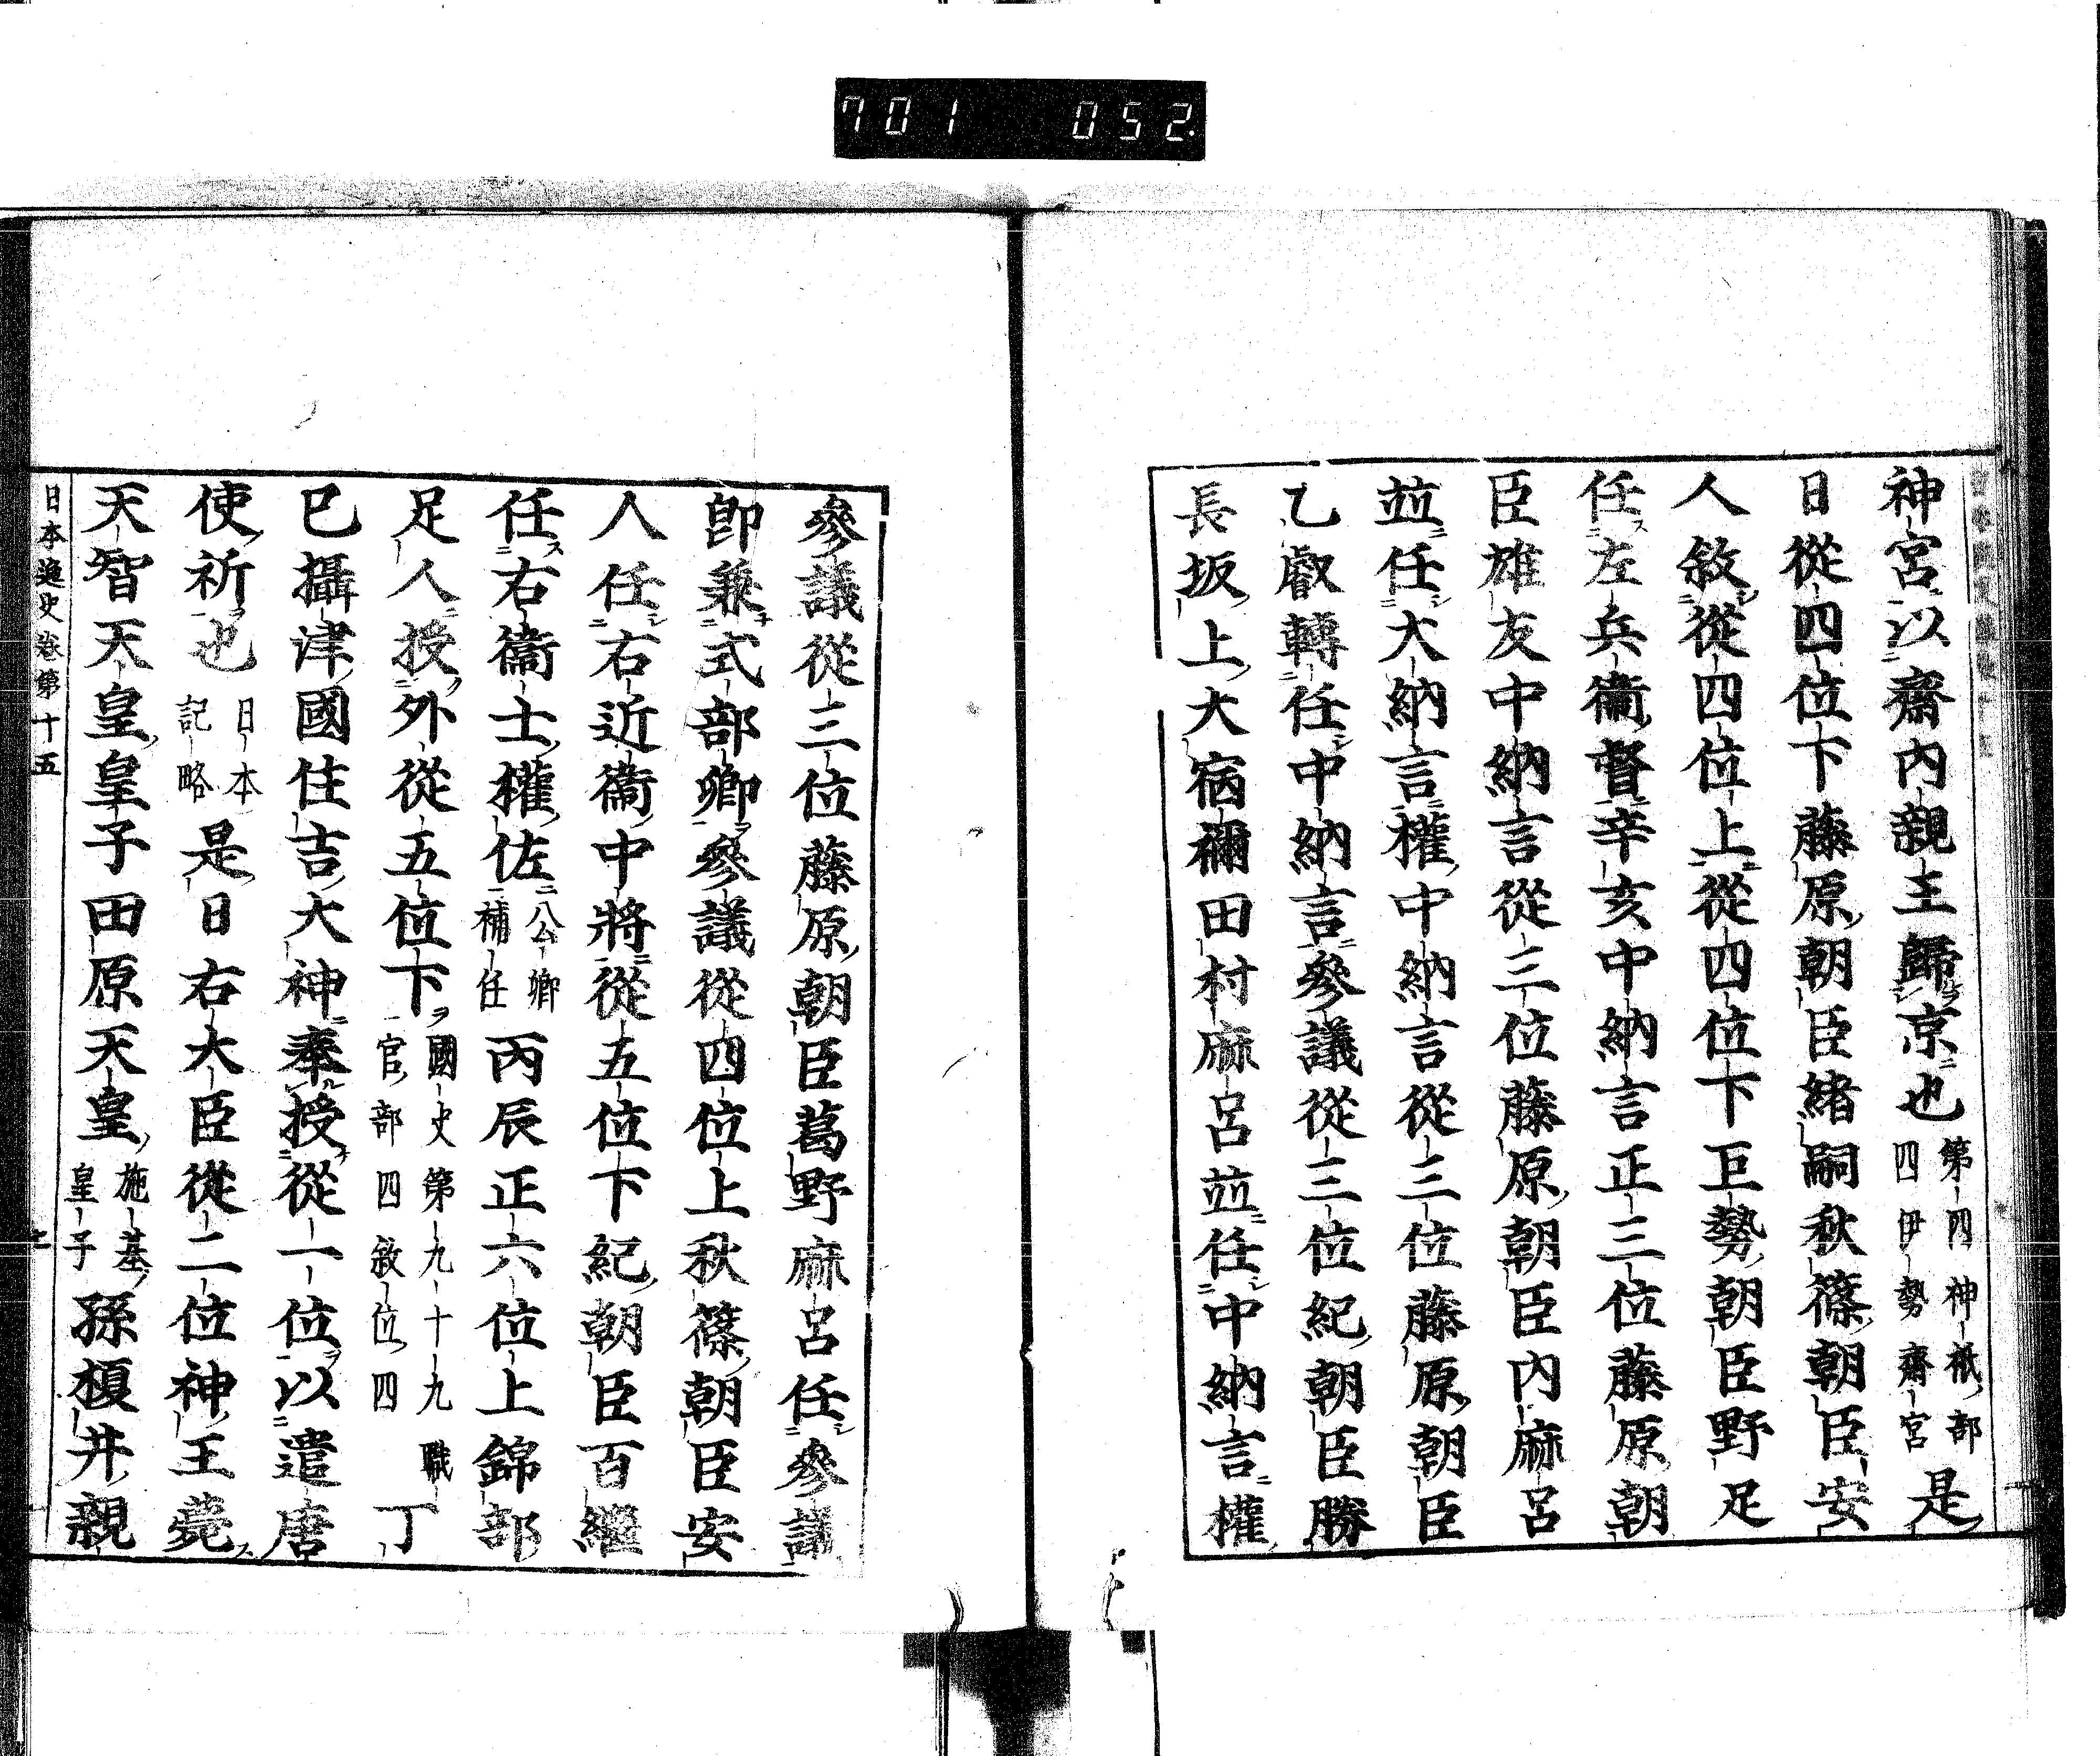 701 052
神宮以齋內親王歸京也第四神祇部四伊勢齋宮是
日從四位下藤原朝臣緒嗣秋篠朝臣安
人敘從四位上從四位下巨勢朝臣野足
任左兵衞督辛亥中納言正三位藤原朝
臣雄友中納言從三位藤原朝臣內麻呂
竝任大納言權中納言從三位藤原朝臣
乙叡轉任中納言參議從三位紀朝臣勝
長坂上大宿禰田村麻呂竝任中納言權
參議從三位藤原朝臣葛野麻呂任參議
卽兼式部卿參議從四位上秋篠朝臣安
人任右近衞中將從五位下紀朝臣百繼
任右衞士權佐公卿補任丙辰正六位上錦部
足人授外從五位下國史第九十九職官部四敘位四丁
巳攝津國住吉大神奉授從一位以遣唐
使祈也日本記略是日右大臣從二位神王薨
天智天皇皇子田原天皇施基皇子孫榎井親
日本逸史卷第十五